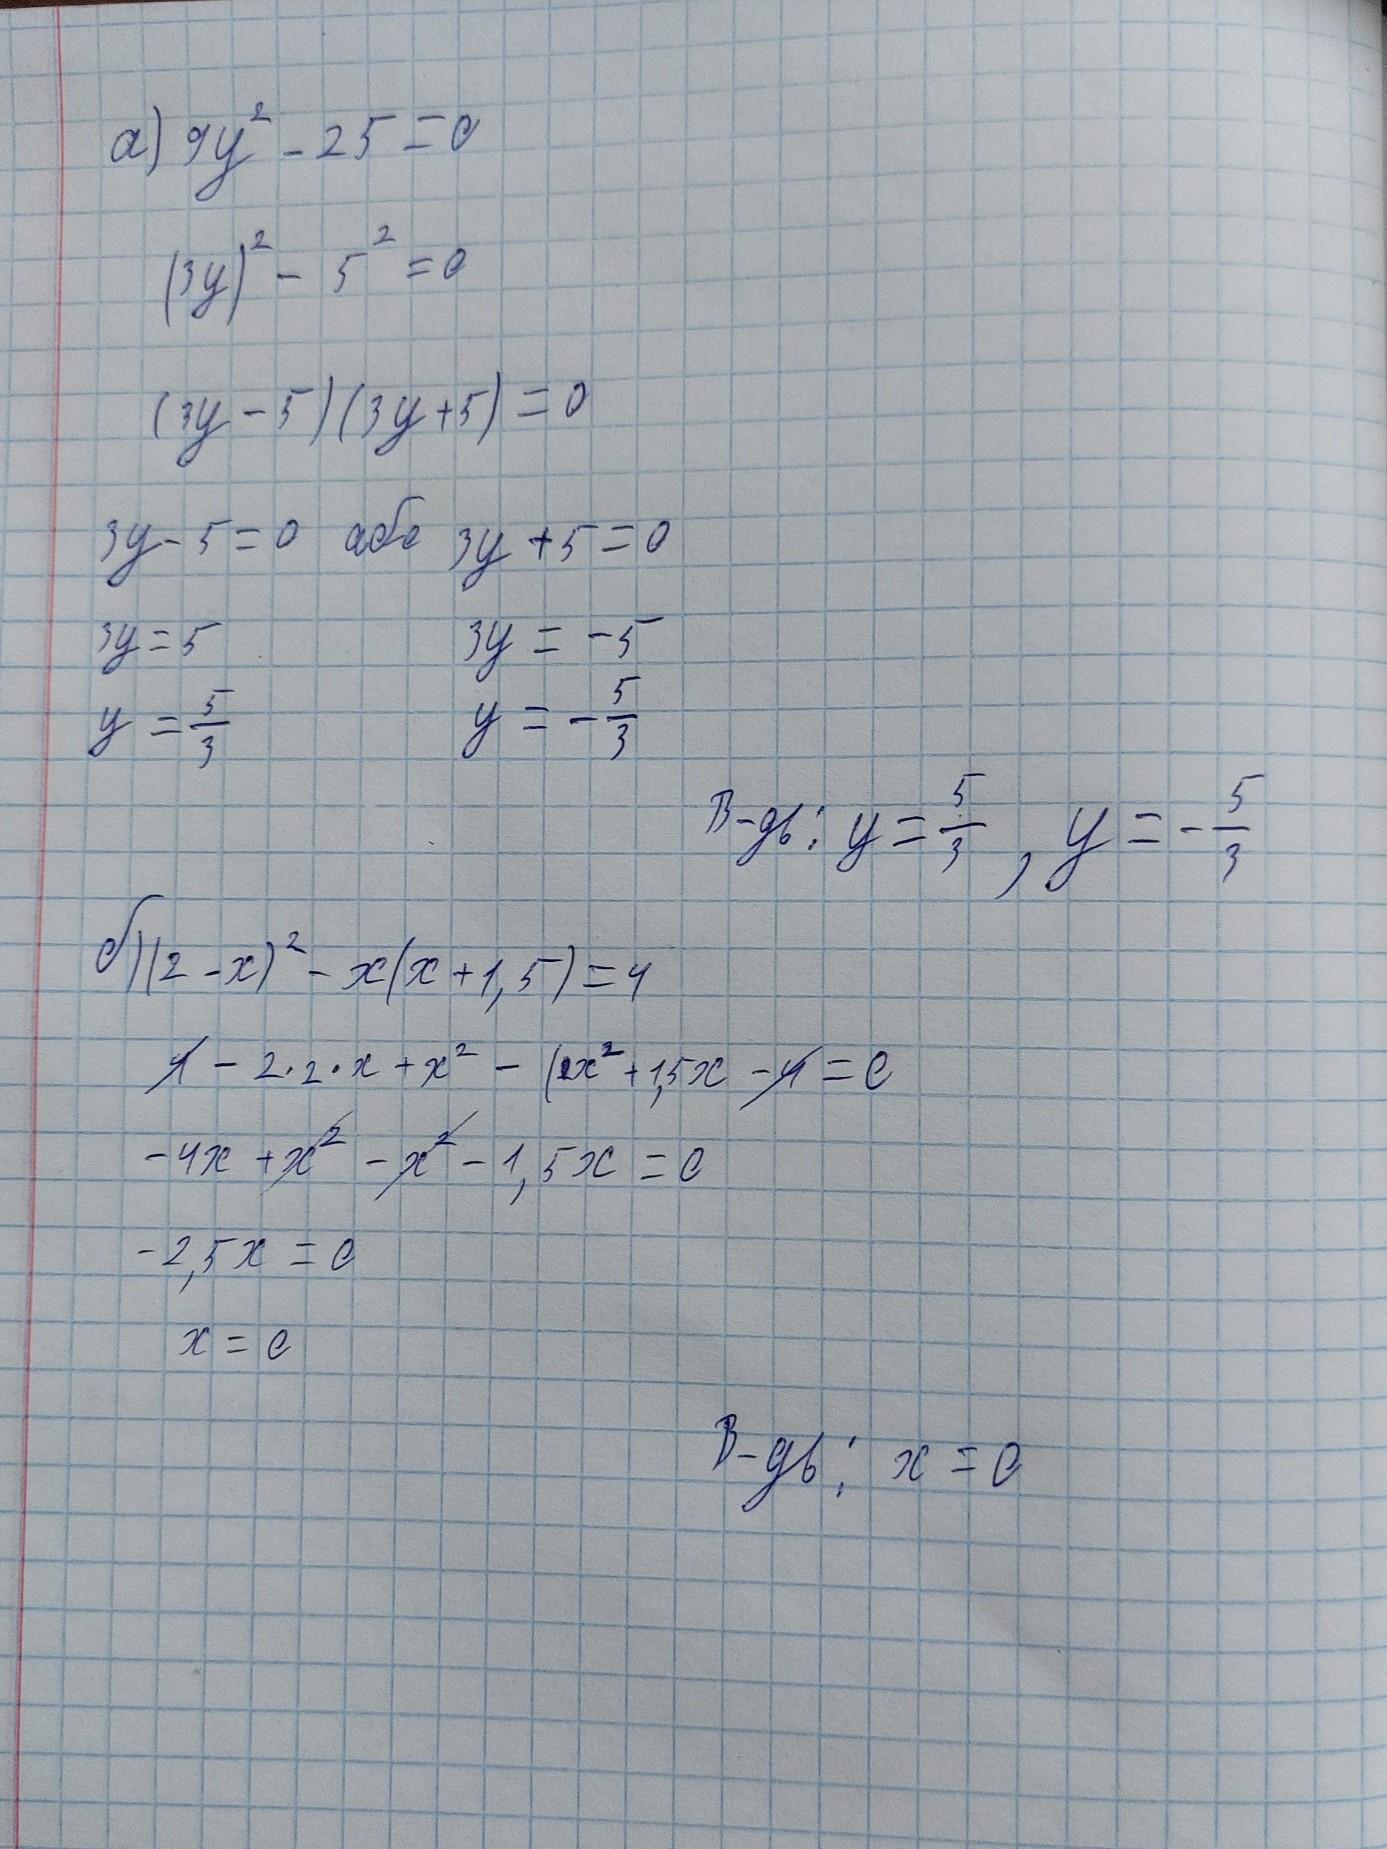 а) 9y² - 25 = 0
(3y)² - 5² = 0
(3y - 5)(3y + 5) = 0
3y - 5 = 0 або 3y + 5 = 0
3y = 5 3y = -5
y = 5/3 y = -5/3
В-дь: y = 5/3, y = -5/3
б) (2 - x)² - x(x + 1,5) = 4
4 - 2·2·x + x² - (x² + 1,5x - 4 = 0
-4x + x² - x² - 1,5x = 0
-2,5x = 0
x = 0
В-дь: x = 0